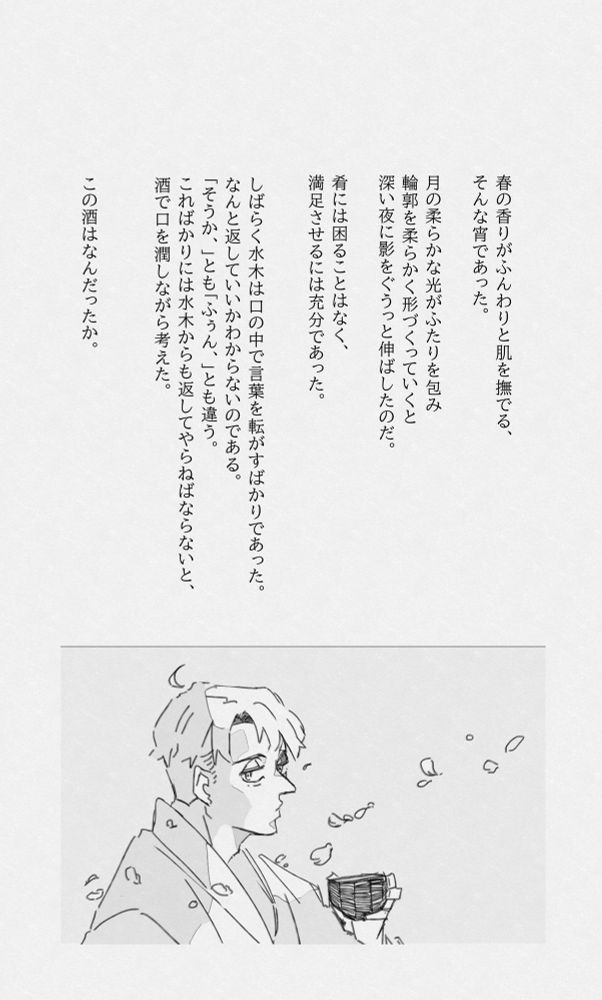 春の香りがふんわりと肌を撫でる、
そんな宵であった。
月の柔らかな光がふたりを包み
輪郭を柔らかく形づくっていくと
深い夜に影をぐうっと伸ばしたのだ。
肴には困ることはなく、
満足させるには充分であった。
しばらく水木は口の中で言葉を転がすばかりであった。
なんと返していいかわからないのである。
「そうか、」とも「ふぅん、」とも違う。
こればかりには水木からも返してやらねばならないと、
酒で口を潤しながら考えた。
この酒はなんだったか。